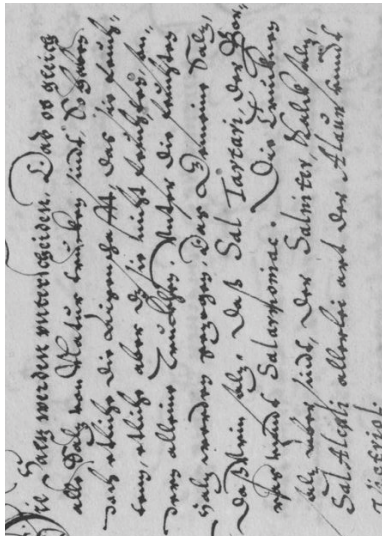 Die Saltz werden unterscheiden. Das ob gleich
alle Saltz von Natur trucken sindt, So haben
doch etliche die Eigenschafft, das sie feuch-
ten, etliche aber dz sie nicht feuchten, son-
dern alleine trucknen. Unter die feuchten
Saltz werden gezogen, Das Gemeine Saltz,
Das Sal Tartari, Der Bor-
undt Salarmoniac. Die trucknen
aber sindt, Der Salniter, Kalck
Sal Alcali allerlei art der Alaun undt